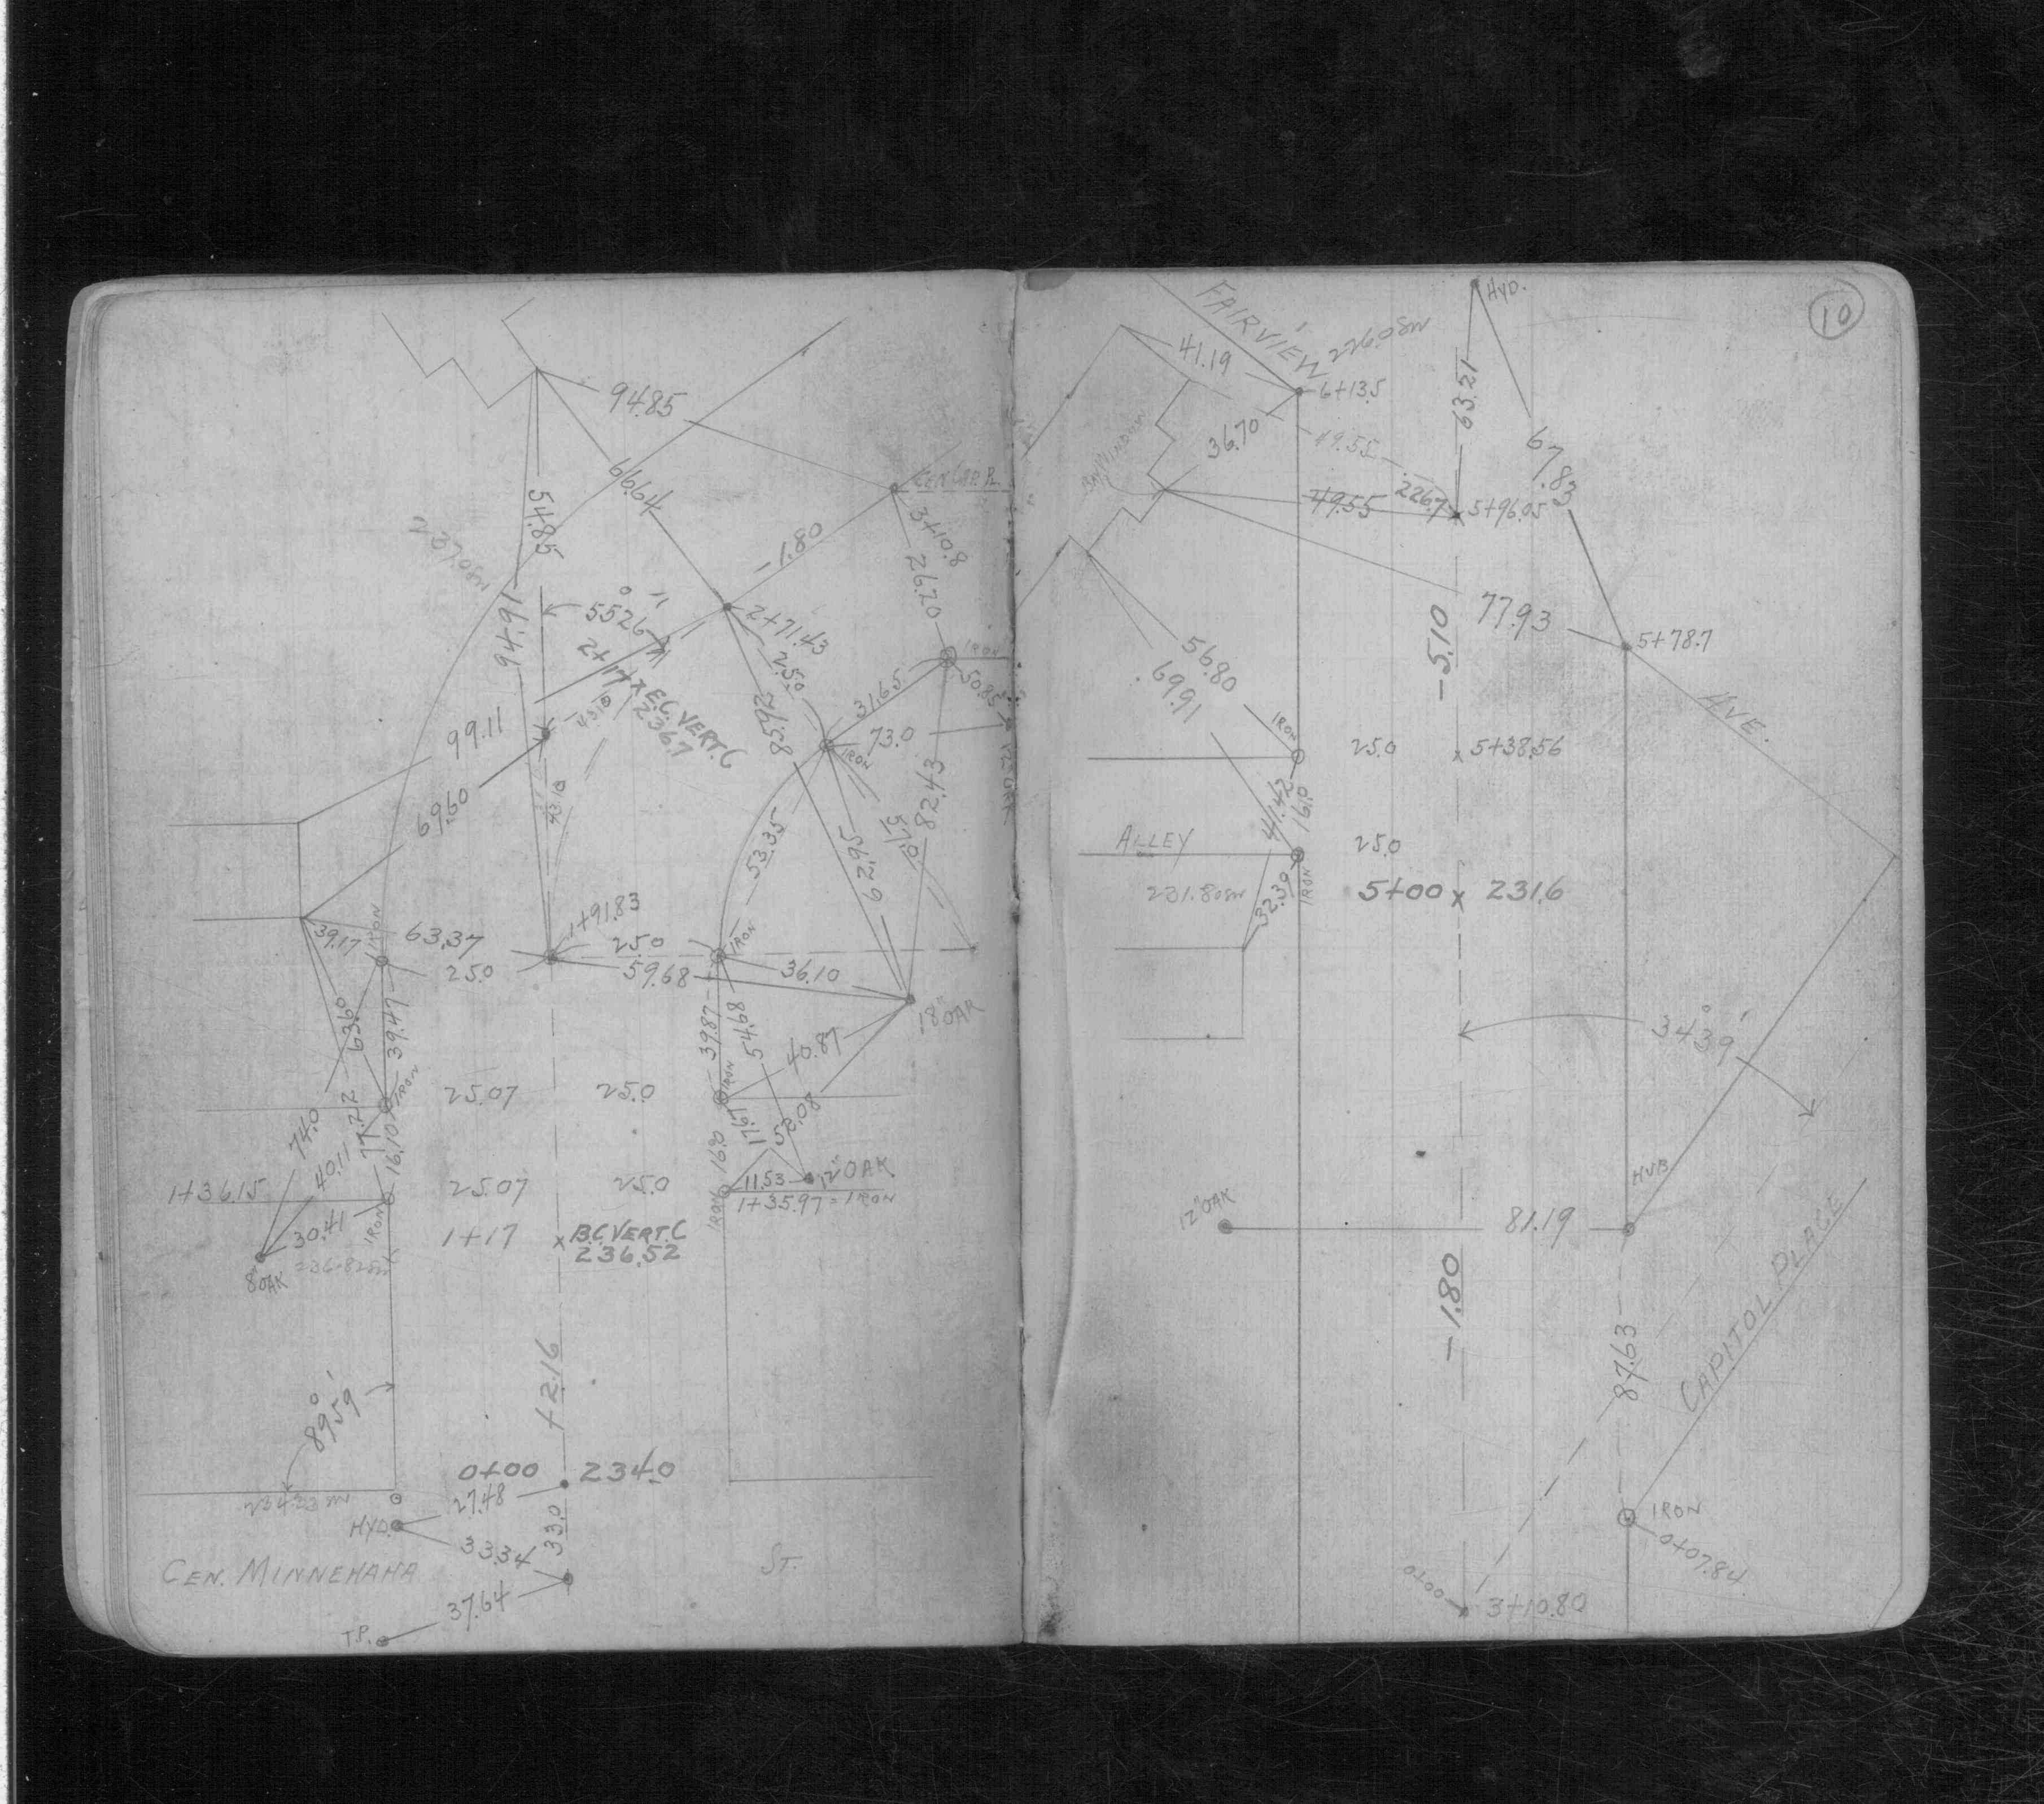 94.85
66.64
54.85
CEN. CAP. PL.
3+10.8
26.20
-1.80
237.0 SW
55°26"
2+71.43
94.91
2+17 x E.C. VERT. C
236.7
43.10
25.0
85.92
31.65
IRON
50.85
99.11
73.0
IRON
69.60
43.10
53.35
62.95
57.0
82.43
1+91.83
39.17
IRON
63.37
25.0
IRON
25.0
59.68
36.10
18" OAK
63.60
39.47
39.87
54.68
40.87
IRON
25.07
25.0
IRON
74.0
40.11
17.22
16.10
16.0
17.67
52.08
1+36.15
25.07
25.0
11.53
12" OAK
1+35.97 = IRON
30.41
IRON
IRON
8" OAK
236.82 SW
1+17
B.C. VERT. C
236.52
+2.16
89°59'
0+00
234.0
27.48
HYD.
33.34
33.0
CEN. MINNEHAHA
ST.
37.64
T.P.
10
HYD.
FAIRVIEW
226.0 SW
41.19
6+13.5
63.21
BAY WINDOW
36.70
49.55
67.83
49.55
226.7
5+96.05
77.93
-5.10
5+78.7
56.80
69.91
AVE.
IRON
25.0
5+38.56
41.42
16.0
ALLEY
25.0
231.80 SW
32.39
IRON
5+00 x 231.6
34°39'
HUB
12" OAK
81.19
-1.80
87.63
CAPITOL PLACE
IRON
0+07.84
0+00
3+10.80